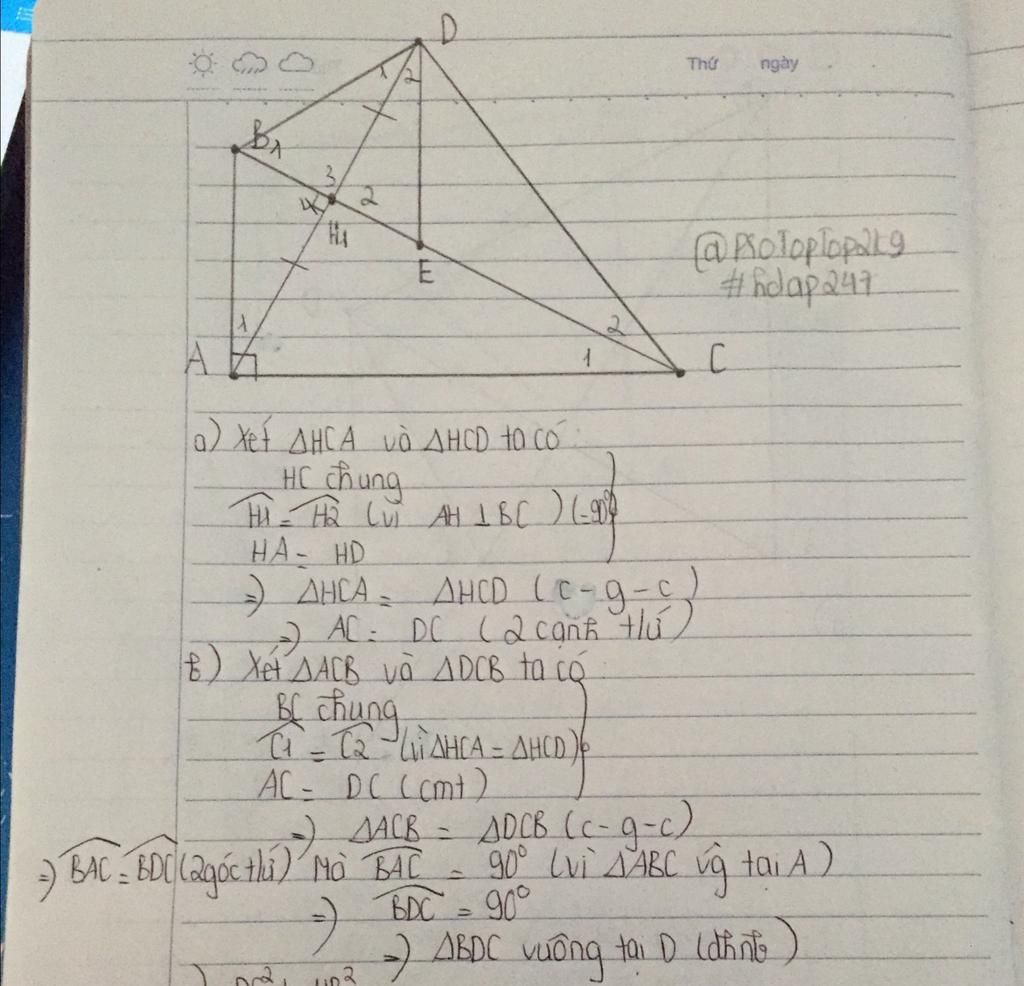 Thứ ngày
D
1 2
B1
3
4 2
H1
E
@PROTopTop2k9
#hdap247
1
2
A 1 C
a) Xét ΔHCA và ΔHCD ta có:
HC chung
H1 = H2 (vì AH ⊥ BC) (=90°)
HA = HD
=) ΔHCA = ΔHCD (c-g-c)
=) AC = DC (2 cạnh t/ứ)
b) Xét ΔACB và ΔDCB ta có:
BC chung
C1 = C2 (vì ΔHCA = ΔHCD)
AC = DC (cmt)
=) ΔACB = ΔDCB (c-g-c)
=) BAC = BDC (2 góc t/ứ) Mà BAC = 90° (vì ΔABC vg tại A)
=) BDC = 90°
=) ΔBDC vuông tại D (đhnb)